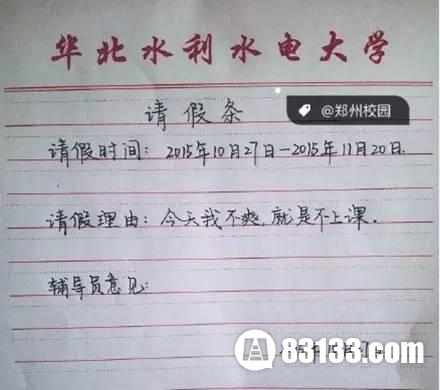 华北水利水电大学
@郑州校园
请假条
请假时间：2015年10月27日—2015年11月20日.
请假理由：今天我不爽,就是不上课.
辅导员意见:
83133.com